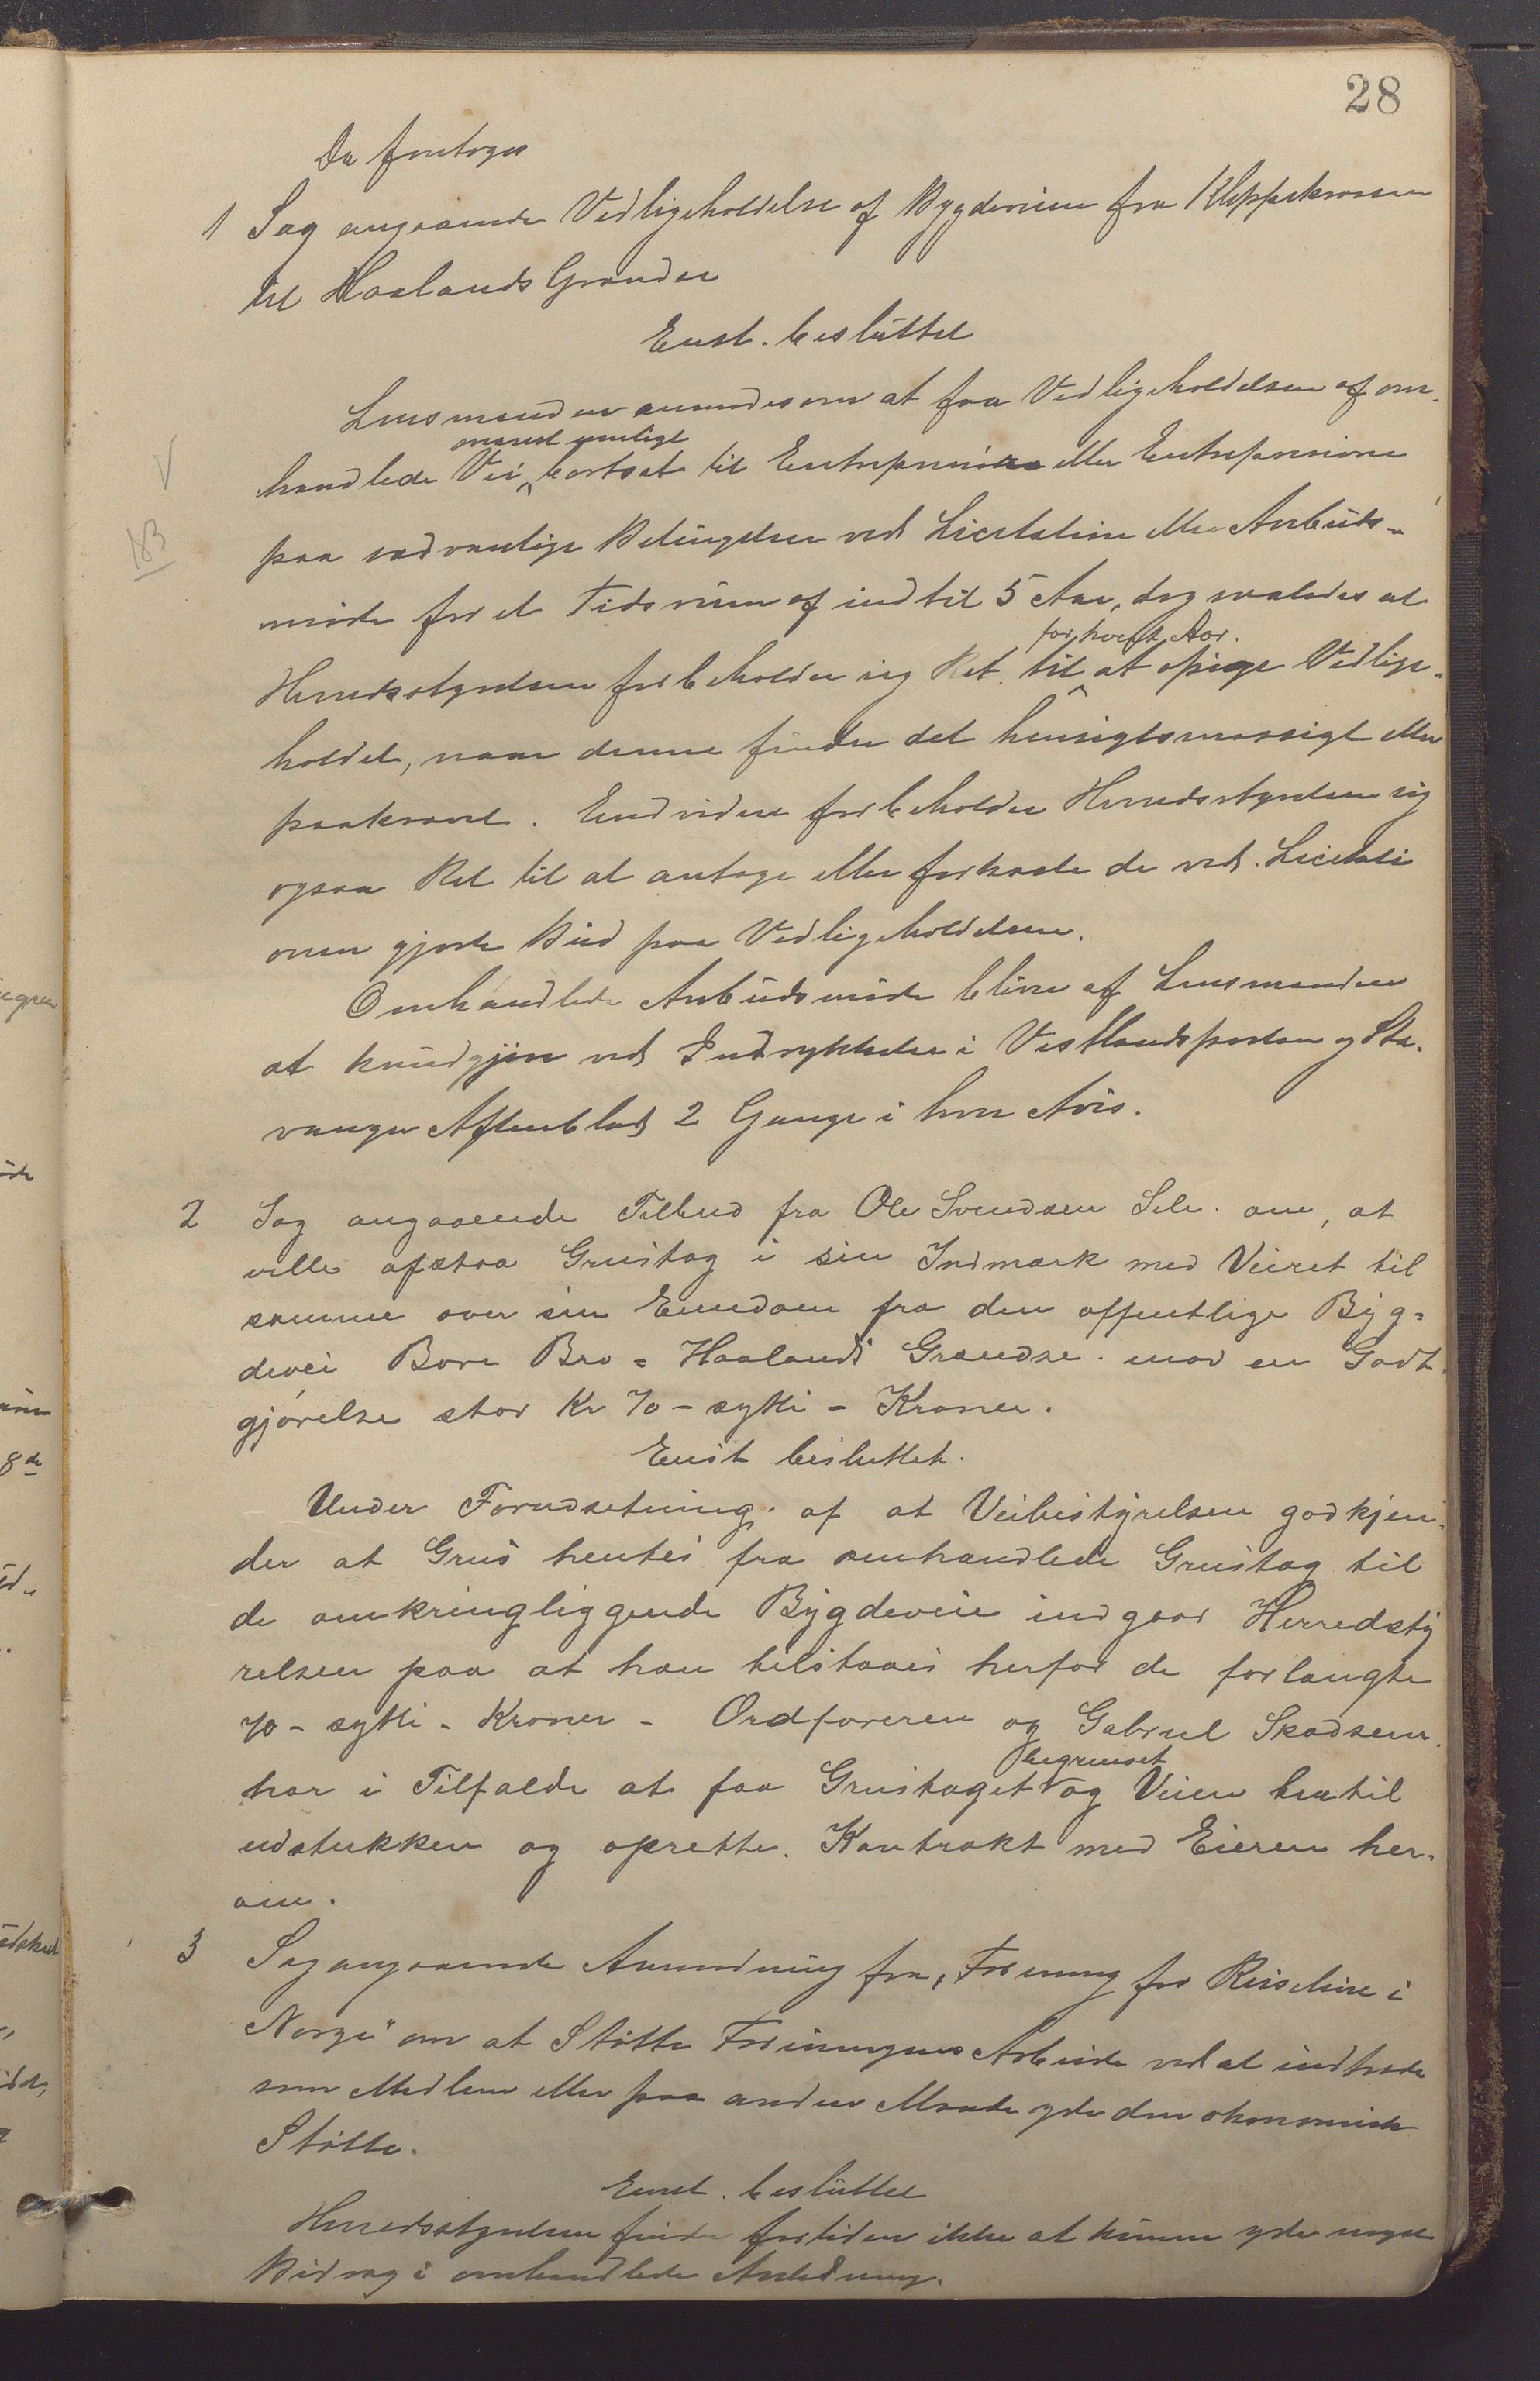 28
Da foretoges
1 Sag angaaende Vedligeholdelse af Bygdeveien fra Kleppekrossen
til Haalands Grændse
Enst. besluttet
Lensmanden anmodes om at faa Vedligeholdelsen af om-
snarest muligt
handlede Vei bortsat til Entreprenør eller Entreprenører
paa sædvanlige Betingelser ved Licitation eller Anbuds-
møde for et Tidsrum af indtil 5 Aar, dog saaledes at
for hvert Aar.
Herredsstyrelsen forbeholder sig Ret til at opsige Vedlige-
holdet, naar denne finder det hensigtsmæssigt eller
paakrævet. Endvidere forbeholder Herredsstyrelsen sig
ogsaa Ret til at antage eller forkaste de ved Licitati
onen gjorte Bud paa Vedligeholdelsen.
Omhandlede Anbudsmøde bliver af Lensmanden
at kundgjøre ved Indrykkelse i Vestlandsposten og Sta-
vanger Aftenblad 2 Gange i hver Avis.
2 Sag angaaende Tilbud fra Ole Svendsen Sele om, at
ville afstaa Grustag i sin Indmark med Veiret til
samme over sin Eiendom fra den offentlige Byg=
devei Bore Bro = Haalands Grændse mod en Godt-
gjørelse stor Kr 70 - sytti - Kroner.
Enst besluttet.
Under Forudsetning af at Veibestyrelsen godkjen-
der at Grus hentes fra omhandlede Grustag til
de omkringliggende Bygdeveie indgaar Herredsty
relsen paa at han tilstaaes herfor de forlangte
70 - sytti - Kroner - Ordføreren og Gabriel Skadsem
begrenset
har i Tilfælde at faa Grustaget og Veien hertil
udstukken og oprette Kontrakt med Eieren her-
om.
3 Sag angaaende Anmodning fra „Forening for Reiselive i
Norge" om at Støtte Foreningens Arbeide ved at indtræde
som Medlem eller paa anden Maade yde den økonomisk
Støtte.
Enst. besluttet
Herredsstyrelsen finder fortiden ikke at kunne yde noget
Bidrag i omhandlede Anledning.